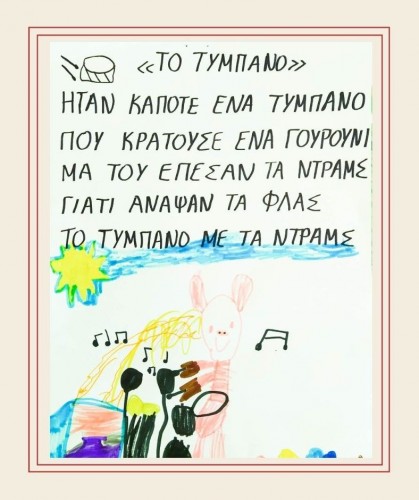 «ΤΟ ΤΥΜΠΑΝΟ»
ΗΤΑΝ ΚΑΠΟΤΕ ΕΝΑ ΤΥΜΠΑΝΟ
ΠΟΥ ΚΡΑΤΟΥΣΕ ΕΝΑ ΓΟΥΡΟΥΝΙ
ΜΑ ΤΟΥ ΕΠΕΣΑΝ ΤΑ ΝΤΡΑΜΣ
ΓΙΑΤΙ ΑΝΑΨΑΝ ΤΑ ΦΛΑΣ
ΤΟ ΤΥΜΠΑΝΟ ΜΕ ΤΑ ΝΤΡΑΜΣ